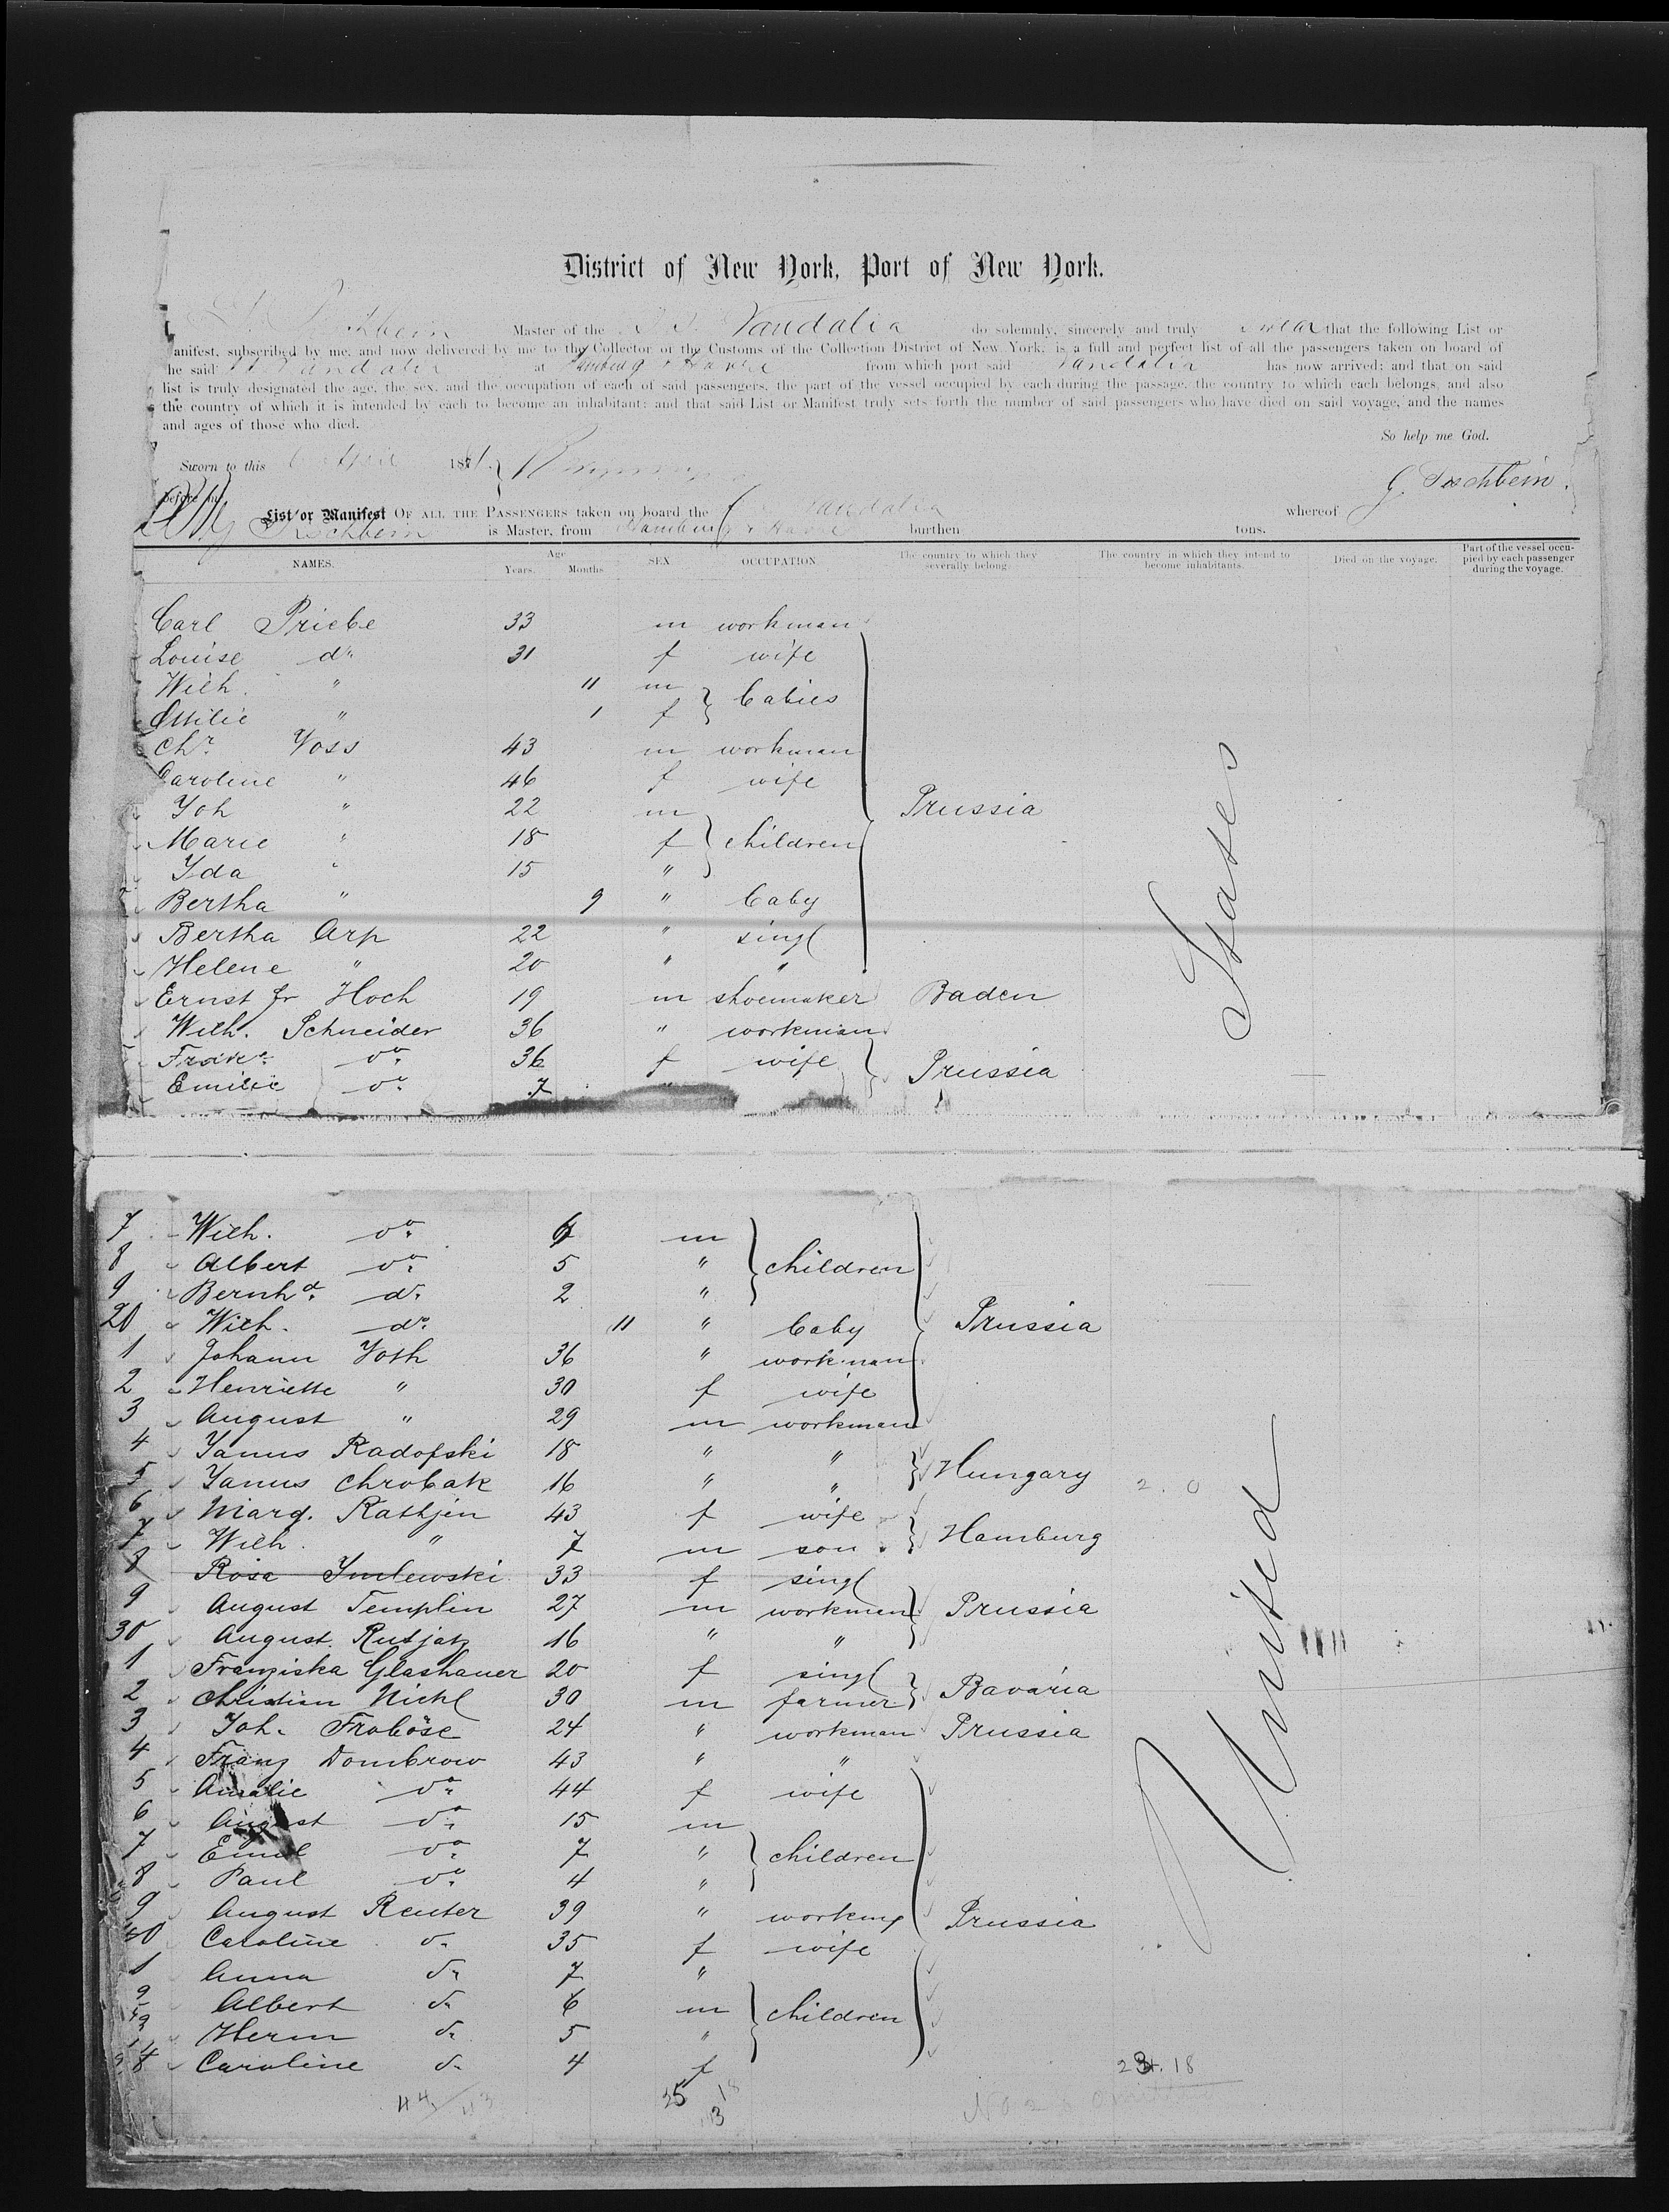 District of New York, Port of New York.
Master of the S. S. Vandalia do solemnly, sincerely and truly swear that the following List or
anifest, subscribed by me, and now delivered by me to the Collector of the Customs of the Collection District of New York, is a full and perfect list of all the passengers taken on board of
he said Vandalia at Hamburg & Havre from which port said Vandalia has now arrived; and that on said
list is truly designated the age, the sex, and the occupation of each of said passengers, the part of the vessel occupied by each during the passage, the country to which each belongs, and also
the country of which it is intended by each to become an inhabitant; and that said List or Manifest truly sets forth the number of said passengers who have died on said voyage, and the names
and ages of those who died.
So help me God.
Sworn to this April 1881
before m
List or Manifest OF ALL THE PASSENGERS taken on board the Vandalia whereof
is Master, from Hamburg & Havre burthen tons.
NAMES. Age Years. Months SEX OCCUPATION The country to which they severally belong. The country in which they intend to become inhabitants. Died on the voyage. Part of the vessel occupied by each passenger during the voyage.
Carl Priebe 33 m workman
Louise do 31 f wife
Wilh. " 11 m babies
Ottilie " 1 f
Chr. Voss 43 m workman
Caroline " 46 f wife
Joh " 22 m Prussia
Marie " 18 f children
Ida " 15 "
Bertha " 9 " baby
Bertha Arp 22 " singl
Helene " 20 " "
Ernst Fr Hoch 19 m shoemaker Baden
Wilh. Schneider 36 " workman
do. 36 f wife Prussia
Emilie do. 7
7 Wilh. do. 6 m
8 Albert do. 5 " children
9 Bernhd. do. 2 "
20 Wilh. do. 11 " baby Prussia
1 Johann Voth 36 " workman
2 Henriette " 30 f wife
3 August " 29 m workman
4 Janus Radofski 18 " "
5 Janus Chrobak 16 " " Hungary 2. 0
6 Marg. Rathjen 43 f wife
7 Wilh. " 7 m son Hamburg
8 Rosa 33 f singl
9 August Templin 27 m workman Prussia
30 August Rutjatz 16 " "
1 Franziska Glashauer 20 f singl
2 Christian Nickl 30 m farmer Bavaria
3 Joh. Froböse 24 " workman Prussia
4 Franz Dombrow 43 " "
5 Amalie do. 44 f wife
6 August do. 15 m
7 Emil do. 7 " children
8 Paul do. 4 "
9 August Reuter 39 " workmn Prussia
40 Caroline do. 35 f wife
1 Anna do. 7 "
2 Albert do. 6 m children
3 Herm do. 5 "
4 Caroline do. 4 f
United States